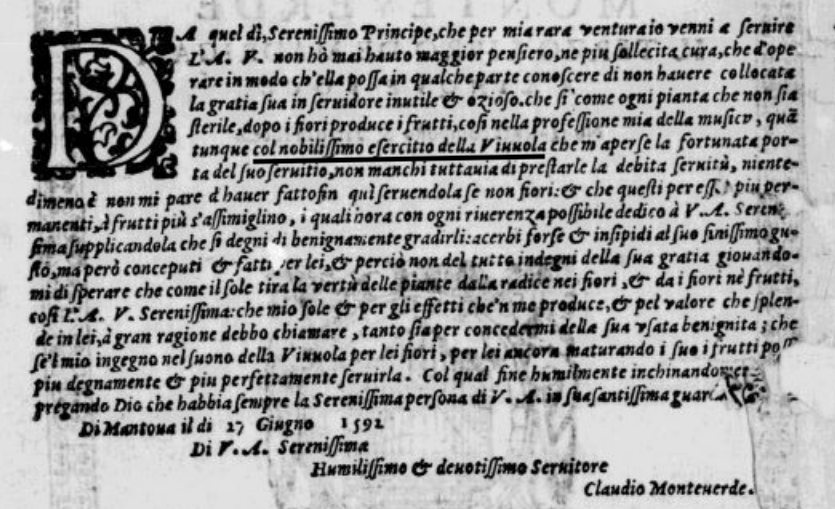 DA quel dì, Sereniſſimo Principe, che per mia rara ventura io venni a ſeruire
L'A. V. non hò mai hauto maggior penſiero, ne piu ſollecita cura, che d'ope
rare in modo ch'ella poſſa in qualche parte conoſcere di non hauere collocata
la gratia ſua in ſeruidore inutile & ozioſo. che ſi come ogni pianta che non ſia
ſterile, dopo i fiori produce i frutti, coſi nella profeſſione mia della muſica, quã
tunque col nobiliſſimo eſercitio della Viuuola che m'aperſe la fortunata por-
ta del ſuo ſeruitio, non manchi tuttauia di preſtarle la debita ſeruitù, niente-
dimeno è non mi pare d'hauer fatto fin quì ſeruendola ſe non fiori: & che queſti per eſſ piu per-
manenti, à frutti più s'aſſimiglino, i quali hora con ogni riuerenza poſſibile dedico à V. A. Sereni
ſima ſupplicandola che ſi degni di benignamente gradirli: acerbi forſe & inſipidi al ſuo finiſſimo gu-
ſto, ma però conceputi & fatti per lei, & perciò non del tutto indegni della ſua gratia giouando-
mi di ſperare che come il ſole tira la vertù delle piante dalla radice nei fiori, & da i fiori nè frutti,
coſi L'A. V. Sereniſſima: che mio ſole & per gli effetti che'n me produce, & pel valore che ſplen-
de in lei, à gran ragione debbo chiamare, tanto ſia per concedermi della ſua vſata benignita; che
ſe'l mio ingegno nel ſuono della Viuuola per lei fiori, per lei ancora maturando i ſuoi frutti poſſ
piu degnamente & piu perfettamente ſeruirla. Col qual fine humilmente inchinandomele
pregando Dio che habbia ſempre la Sereniſſima perſona di V. A. in ſua santiſſima guar
Di Mantoua il di 27 Giugno 1592
Di V. A. Sereniſſima
Humiliſſimo & deuotiſſimo Seruitore
Claudio Monteuerde.